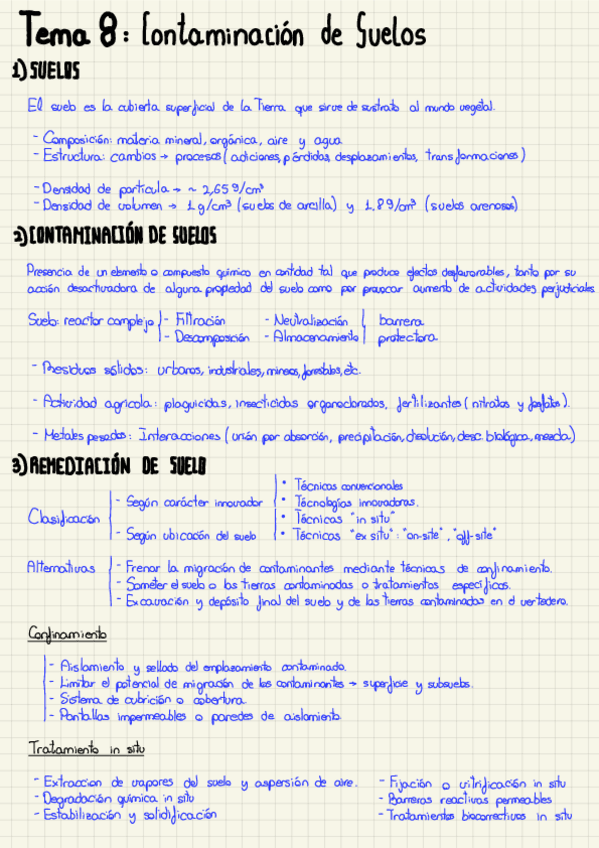 Tema 8: Contaminación de Suelos
1) SUELOS
El suelo es la cubierta superficial de la Tierra que sirve de sustrato al mundo vegetal.
- Composición: materia mineral, orgánica, aire y agua
- Estructura: cambios → procesos (adiciones, pérdidas, desplazamientos, transformaciones)
- Densidad de partícula → ~ 2,65 g/cm³
- Densidad de volumen → 1 g/cm³ (suelos de arcilla) y 1,8 g/cm³ (suelos arenosos)
2) CONTAMINACIÓN DE SUELOS
Presencia de un elemento o compuesto químico en cantidad tal que produce efectos desfavorables, tanto por su
acción desactivadora de alguna propiedad del suelo como por provocar aumento de actividades perjudiciales.
Suelo: reactor complejo - Filtración - Neutralización barrera
- Descomposición - Almacenamiento protectora
- Residuos sólidos: urbanos, industriales, mineros, forestales, etc.
- Actividad agrícola: plaguicidas, insecticidas organoclorados, fertilizantes (nitratos y fosfatos).
- Metales pesados: Interacciones (unión por absorción, precipitación, disolución, desc. biológica, mezcla)
3) REMEDIACIÓN DE SUELO
Clasificación
- Según carácter innovador
• Técnicas convencionales
• Tecnologías innovadoras.
- Según ubicación del suelo
• Técnicas "in situ"
• Técnicas "ex situ": "on-site", "off-site"
Alternativas - Frenar la migración de contaminantes mediante técnicas de confinamiento.
- Someter el suelo o las tierras contaminadas a tratamientos específicos.
- Excavación y depósito final del suelo y de las tierras contaminadas en el vertedero.
Confinamiento
- Aislamiento y sellado del emplazamiento contaminado.
- Limitar el potencial de migración de los contaminantes → superficie y subsuelos.
- Sistema de cubrición o cobertura.
- Pantallas impermeables o paredes de aislamiento.
Tratamiento in situ
- Extraccion de vapores del suelo y aspersión de aire. - Fijación o vitrificación in situ
- Degradación química in situ - Barreras reactivas permeables
- Estabilización y solidificación - Tratamientos biocorrectivos in situ